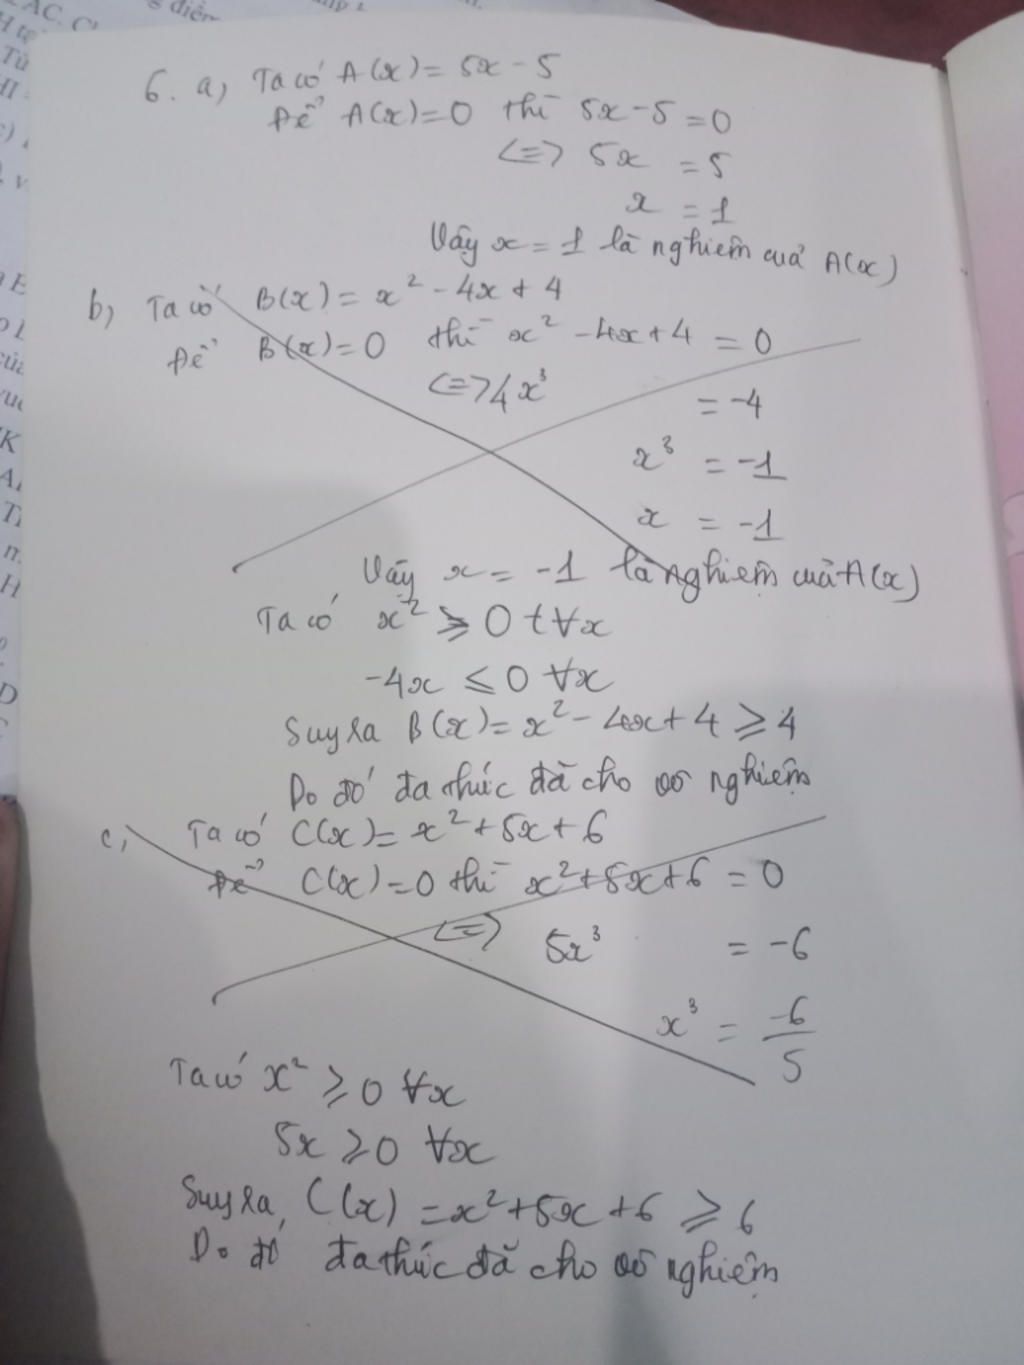 6. a, Ta có A(x) = 5x - 5
Để A(x) = 0 thì 5x - 5 = 0
<=> 5x = 5
x = 1
Vậy x = 1 là nghiệm cuả A(x)
b, Ta có B(x) = x² - 4x + 4
Để B(x) = 0 thì x² - 4x + 4 = 0
<=> 4x³ = -4
x³ = -1
x = -1
Vậy x = -1 là nghiệm cuả A(x)
Ta có x² ≥ 0 t∀x
-4x ≤ 0 ∀x
Suy ra B(x) = x² - 4x + 4 ≥ 4
Do đó đa thức đã cho vô nghiệm
c, Ta có C(x) = x² + 5x + 6
Để C(x) = 0 thì x² + 5x + 6 = 0
<=> 5x³ = -6
x³ = -6/5
Ta có x² ≥ 0 ∀x
5x ≥ 0 ∀x
Suy ra, C(x) = x² + 5x + 6 ≥ 6
Do đó đa thức đã cho vô nghiệm